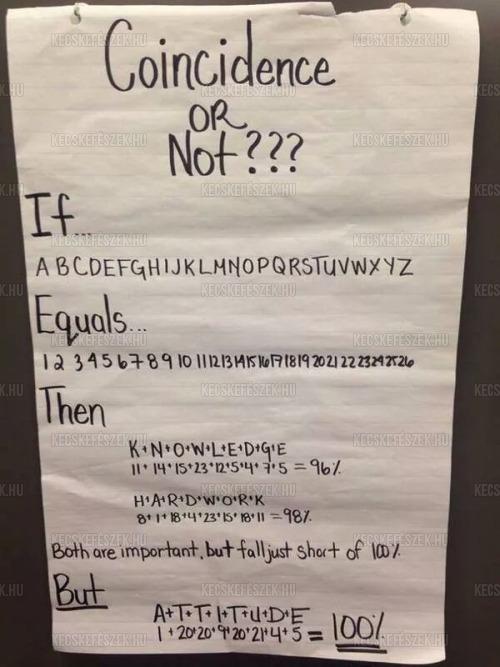 Coincidence
OR
Not???
If...
A B C D E F G H I J K L M N O P Q R S T U V W X Y Z
Equals...
1 2 3 4 5 6 7 8 9 10 11 12 13 14 15 16 17 18 19 20 21 22 23 24 25 26
Then
K+N+O+W+L+E+D+G+E
11+14+15+23+12+5+4+7+5 = 96%
H+A+R+D+W+O+R+K
8+1+18+4+23+15+18+11 = 98%
Both are important, but fall just short of 100%
But
A+T+T+I+T+U+D+E
1+20+20+9+20+21+4+5 = 100%
KECSKEFÉSZEK.HU